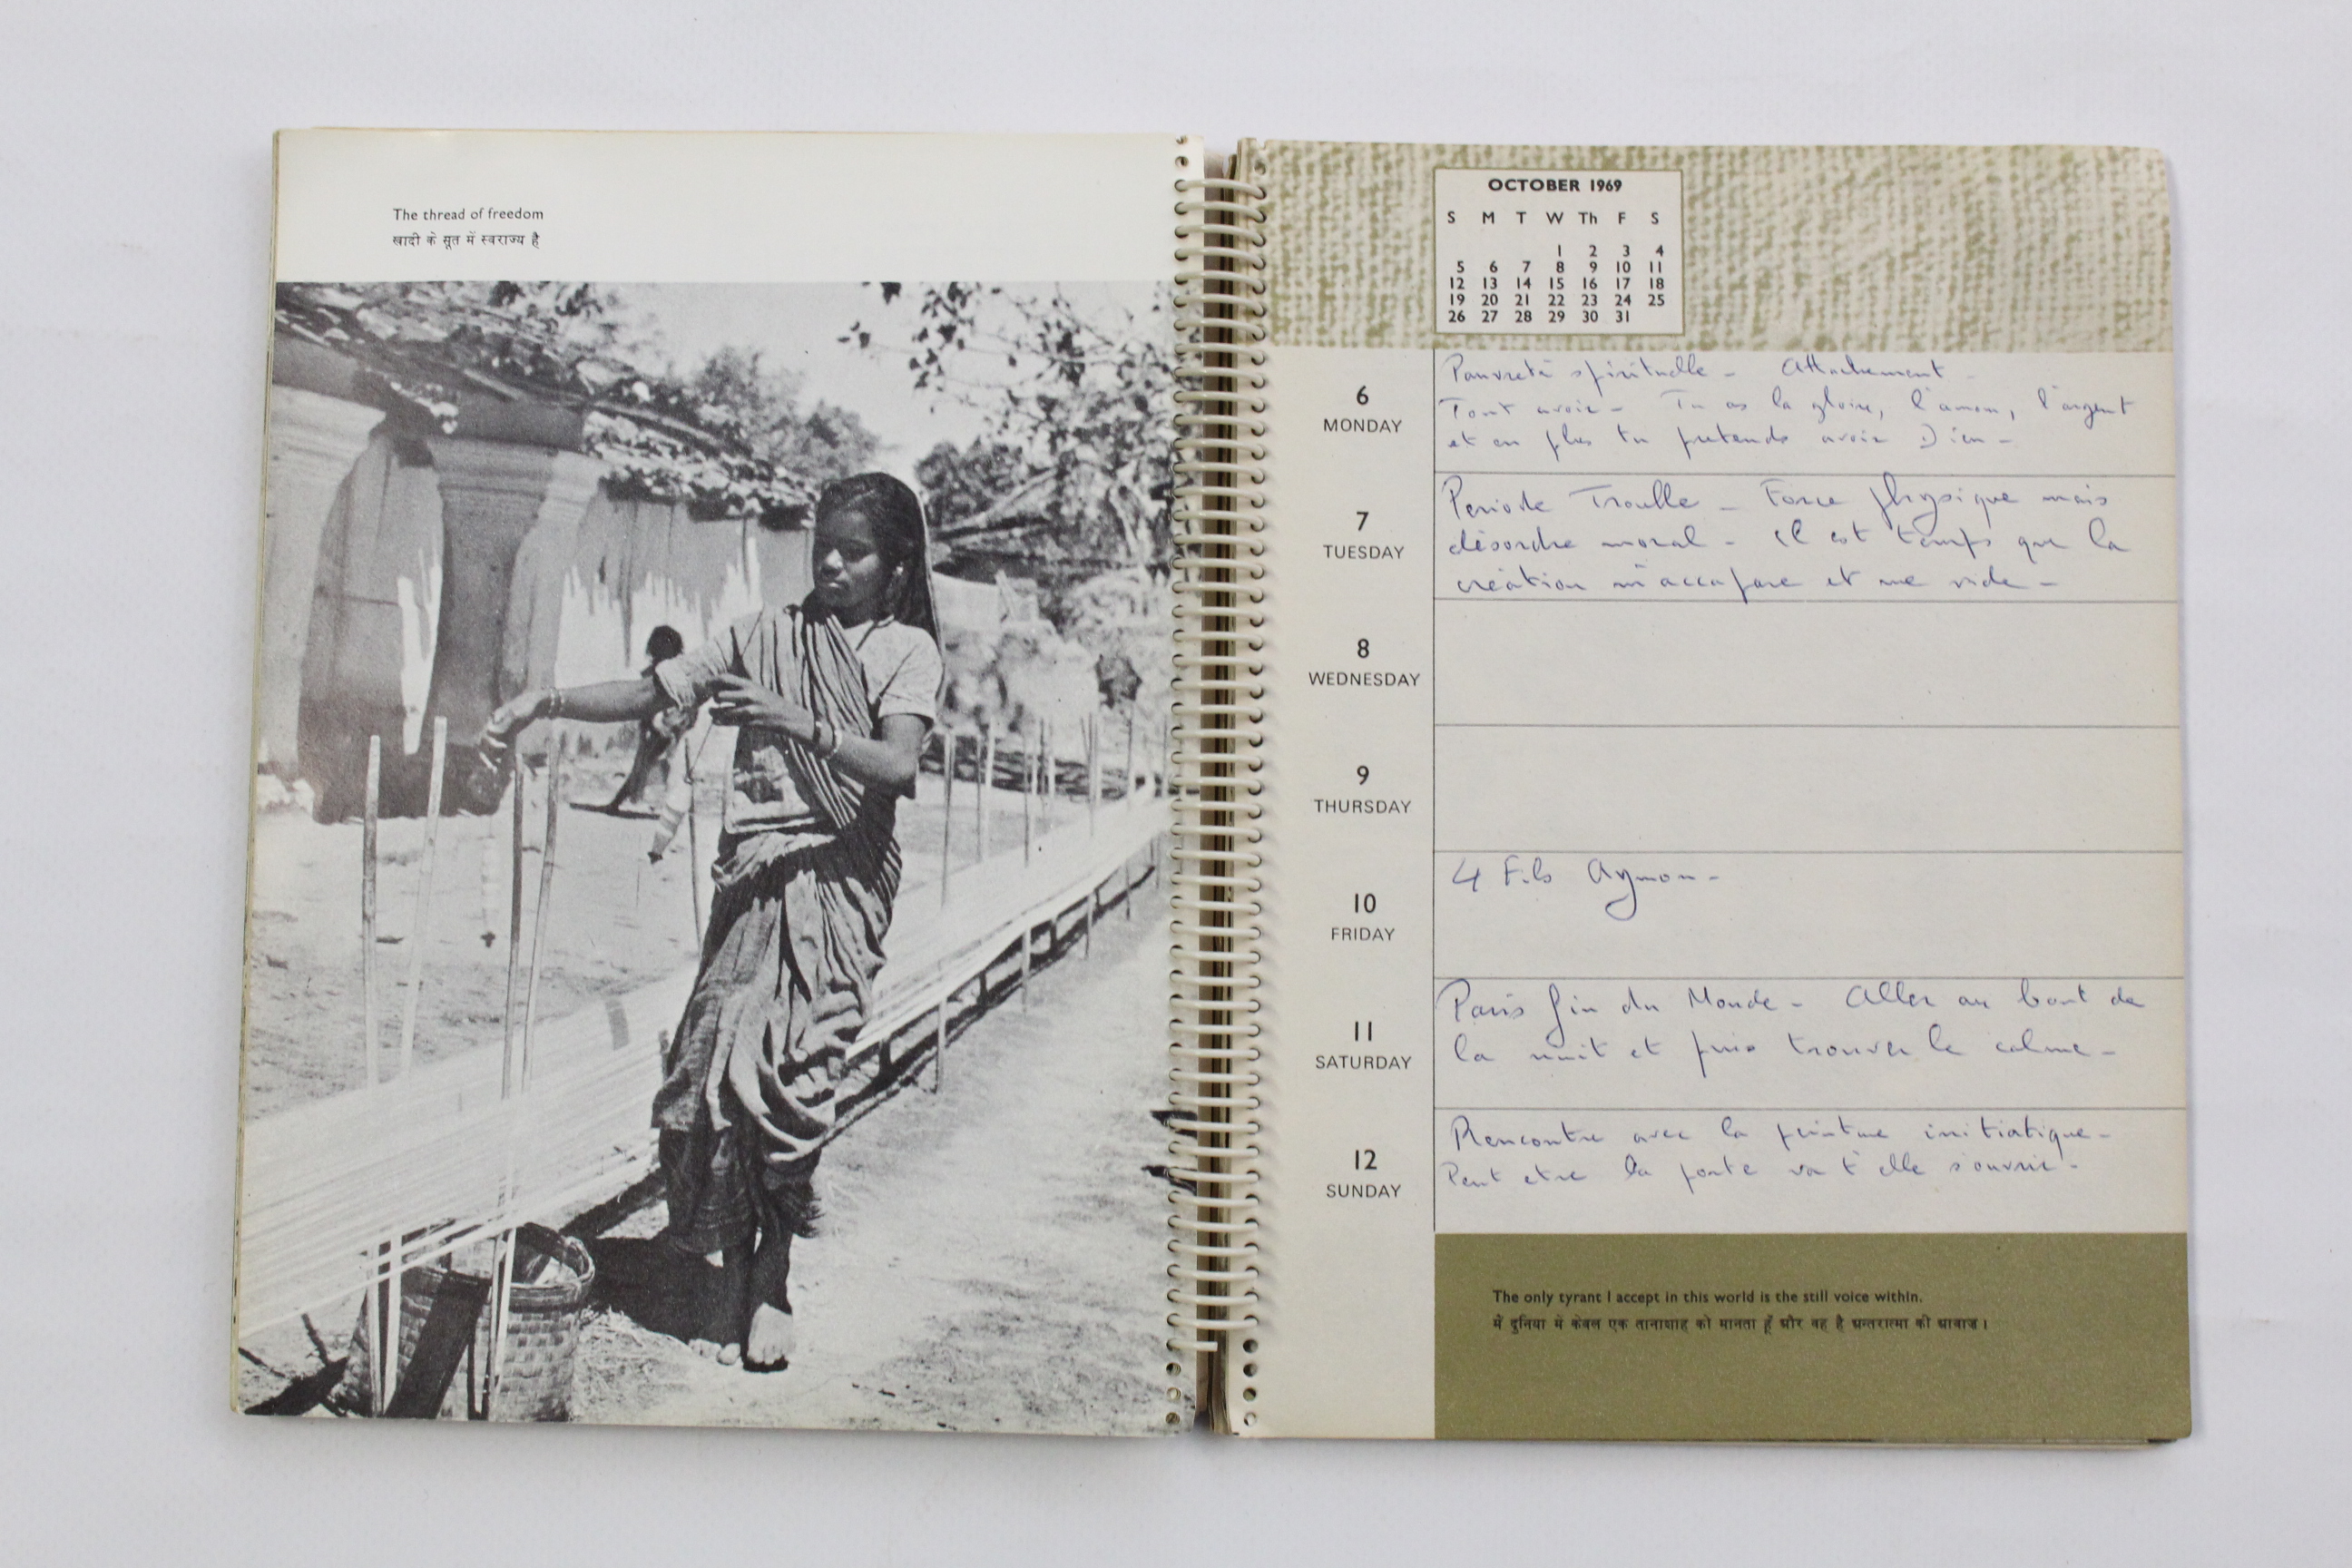 The thread of freedom
खादी के सूत में स्वराज्य है
OCTOBER 1969
S M T W Th F S
1 2 3 4
5 6 7 8 9 10 11
12 13 14 15 16 17 18
19 20 21 22 23 24 25
26 27 28 29 30 31
6
MONDAY
Pauvreté spirituelle - Attachement -
Tout avoir - Tu as la gloire, l'amour, l'argent
et en plus tu pretends avoir Dieu -
7
TUESDAY
Periode Trouble - Force physique mais
désordre moral - Il est temps que la
création m'accapare et me vide -
8
WEDNESDAY
9
THURSDAY
10
FRIDAY
4 Fils Aymon -
11
SATURDAY
Paris fin du Monde - Aller au bout de
la nuit et puis trouver le calme -
12
SUNDAY
Rencontre avec la peinture initiatique -
Peut etre la porte va t'elle s'ouvrir -
The only tyrant I accept in this world is the still voice within.
मैं दुनिया में केवल एक तानाशाह को मानता हूँ और वह है अन्तरात्मा की आवाज।